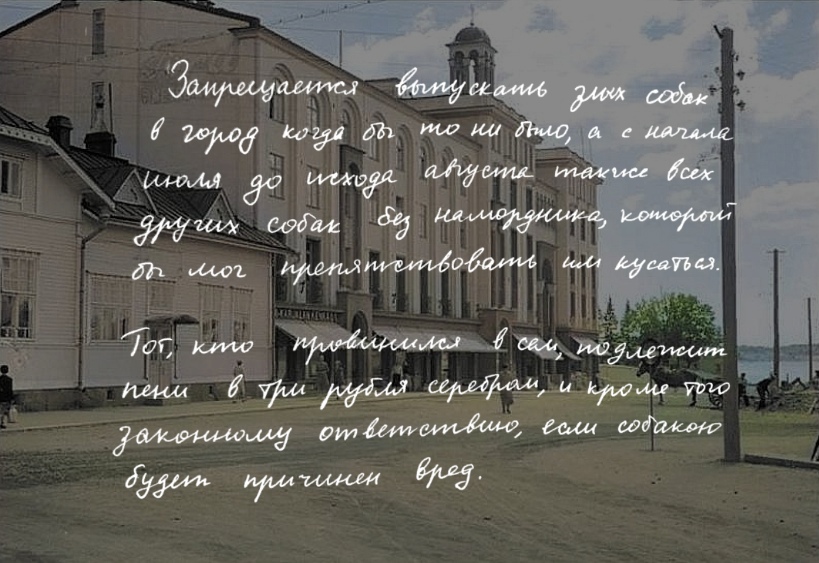 Запрещается выпускать злых собак
в город когда бы то ни было, а с начала
июля до исхода августа также всех
других собак без намордника, который
бы мог препятствовать им кусаться.
Тот, кто провинился в сем, подлежит
пени в три рубля серебром, и кроме того
законному ответствию, если собакою
будет причинен вред.